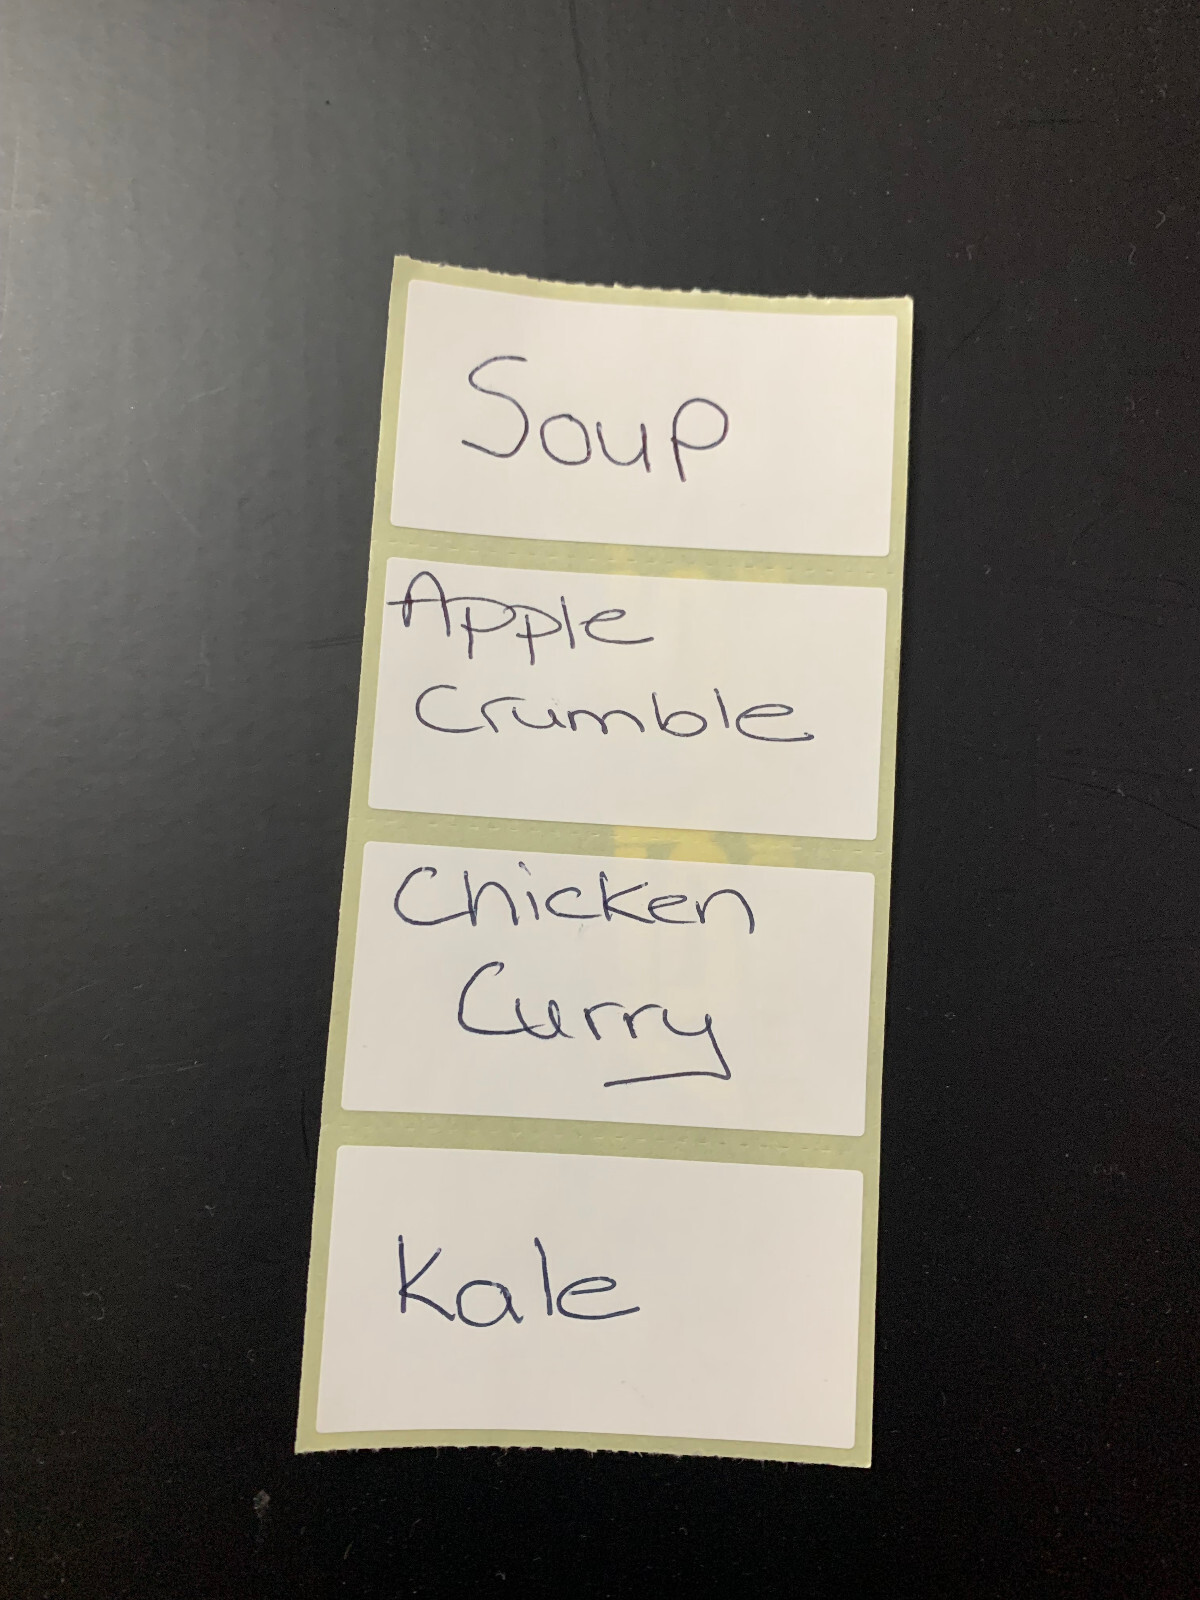 Soup
Apple
Crumble
Chicken
Curry
Kale